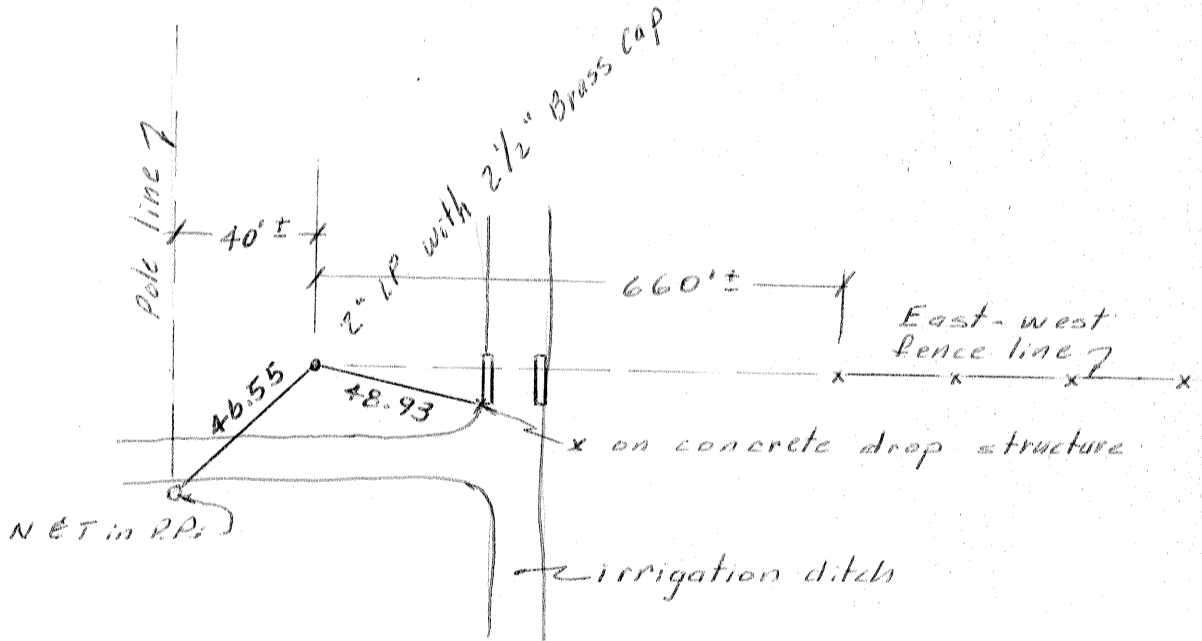 2" I.P with 2½" Brass Cap
Pole line
40' ±
660' ±
East-west
fence line
46.55
48.93
x on concrete drop structure
N & T in P.P.
irrigation ditch